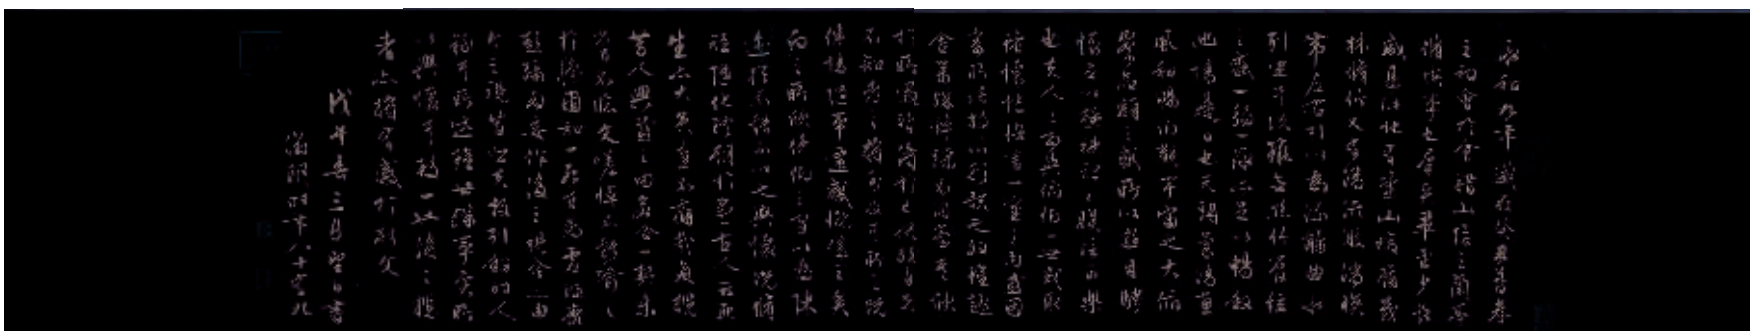 永和九年歲在癸丑暮春
之初會于會稽山陰之蘭亭
脩禊事也羣賢畢至少長
咸集此地有崇山峻領茂
林脩竹又有清流激湍暎
帶左右引以為流觴曲水
列坐其次雖無絲竹管弦
之盛一觴一詠亦足以暢叙
幽情是日也天朗氣清惠
風和暢仰觀宇宙之大俯
察品類之盛所以遊目騁
懷足以極視聽之娛信可樂
也夫人之相與俯仰一世或取
諸懷抱悟言一室之內或因
寄所託放浪形骸之外雖趣
舍萬殊靜躁不同當其欣
於所遇蹔得於己快然自足
不知老之將至及其所之既
倦情隨事遷感慨係之矣
向之所欣俛仰之間以為陳
迹猶不能不以之興懷況脩
短隨化終期於盡古人云死
生亦大矣豈不痛哉每攬
昔人興感之由若合一契未
嘗不臨文嗟悼不能喻之
於懷固知一死生為虛誕齊
彭殤為妄作後之視今亦由
今之視昔悲夫故列叙時人
錄其所述雖世殊事異所
以興懷其致一也後之攬
者亦將有感於斯文
戊午春三月望日書
徵明時年八十有九